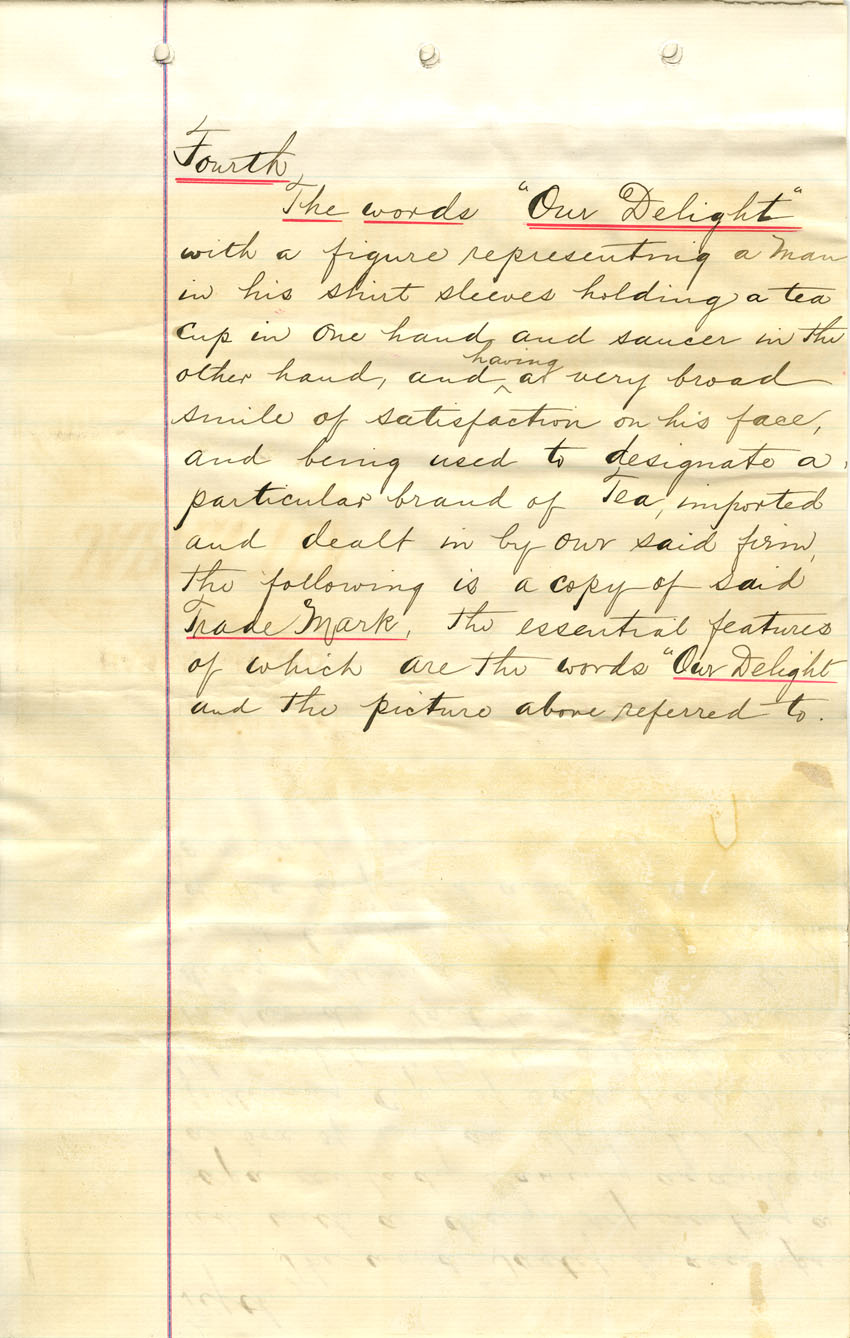 Fourth
The words "Our Delight"
with a figure representing a Man
in his shirt sleeves holding a tea
cup in one hand, and saucer in the
other hand, and having a very broad
smile of satisfaction on his face,
and being used to designate a
particular brand of Tea, imported
and dealt in by our said firm,
the following is a copy of said
Trade Mark, the essential features
of which are the words "Our Delight
and the picture above referred to.